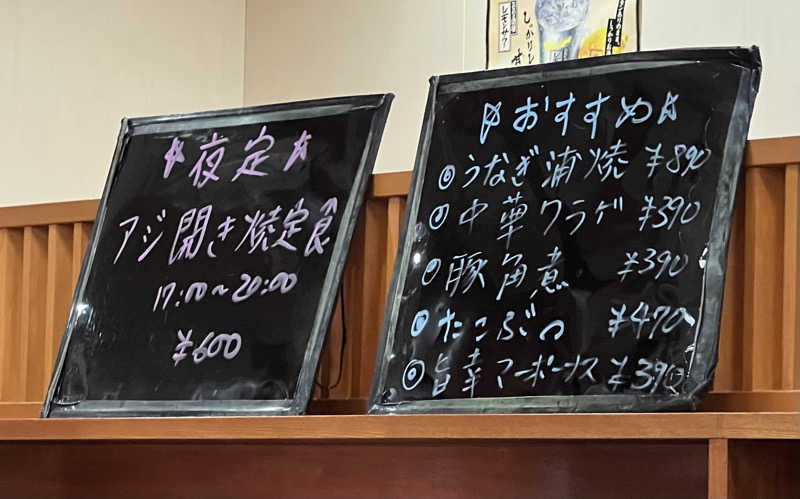 ☆夜定☆
アジ開き焼定食
17:00〜20:00
¥600
☆おすすめ☆
◎うなぎ浦焼 ¥890
◎中華クラゲ ¥390
◎豚角煮 ¥390
◎たこぶつ ¥470
◎旨辛マーボーナス ¥390
レモンサワー